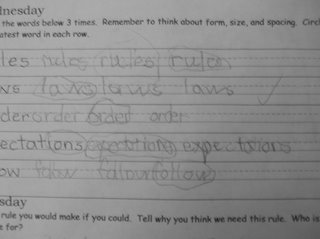 nesday
the words below 3 times. Remember to think about form, size, and spacing. Circ
atest word in each row.
les rules rules rules
ws laws laws laws
der order order order
ectations expectations expectations
ow follow follow follow
sday
rule you would make if you could. Tell why you think we need this rule. Who is
e for?